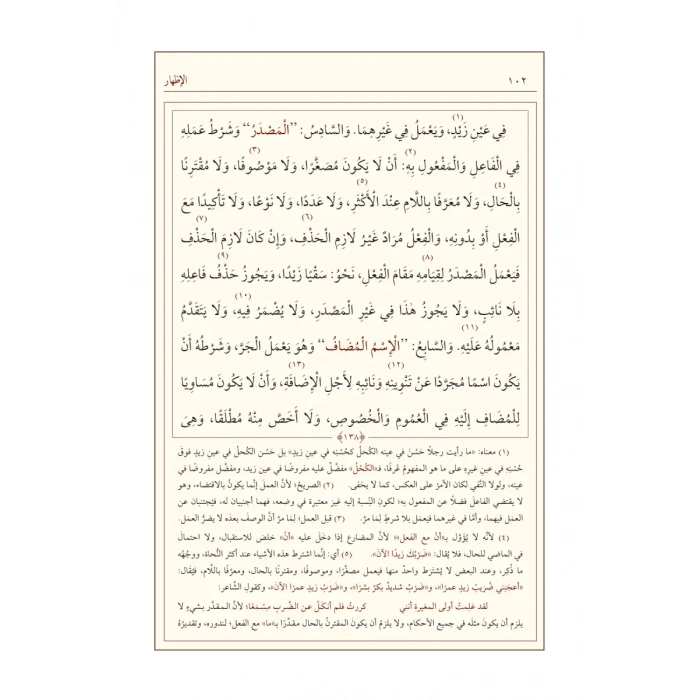 ١٠٢ الإظهار
فِي عَيْنِ زَيْدٍ، وَيَعْمَلُ فِي غَيْرِهِمَا. (١) وَالسَّادِسُ: ”الْمَصْدَرُ“ وَشَرْطُ عَمَلِهِ
فِي الْفَاعِلِ وَالْمَفْعُولِ بِهِ: (٢) أَنْ لَا يَكُونَ مُصَغَّرًا، وَلَا مَوْصُوفًا، (٣) وَلَا مُقْتَرِنًا
بِالْحَالِ، (٤) وَلَا مُعَرَّفًا بِاللَّامِ عِنْدَ الْأَكْثَرِ، (٥) وَلَا عَدَدًا، وَلَا نَوْعًا، وَلَا تَأْكِيدًا مَعَ
الْفِعْلِ أَوْ بِدُونِهِ، وَالْفِعْلُ مُرَادٌ غَيْرُ لَازِمِ الْحَذْفِ، (٦) وَإِنْ كَانَ لَازِمَ الْحَذْفِ (٧)
فَيَعْمَلُ الْمَصْدَرُ لِقِيَامِهِ مَقَامَ الْفِعْلِ، (٨) نَحْوُ: سَقْيًا زَيْدًا، وَيَجُوزُ حَذْفُ فَاعِلِهِ (٩)
بِلَا نَائِبٍ، وَلَا يَجُوزُ هٰذَا فِي غَيْرِ الْمَصْدَرِ، (١٠) وَلَا يُضْمَرُ فِيهِ، وَلَا يَتَقَدَّمُ
مَعْمُولُهُ عَلَيْهِ. (١١) وَالسَّابِعُ: ”الْإِسْمُ الْمُضَافُ“ وَهُوَ يَعْمَلُ الْجَرَّ، وَشَرْطُهُ أَنْ
يَكُونَ اسْمًا مُجَرَّدًا عَنْ تَنْوِينِهِ وَنَائِبِهِ (١٢) لِأَجْلِ الْإِضَافَةِ، (١٣) وَأَنْ لَا يَكُونَ مُسَاوِيًا
لِلْمُضَافِ إِلَيْهِ فِي الْعُمُومِ وَالْخُصُوصِ، وَلَا أَخَصَّ مِنْهُ مُطْلَقًا، وَهِيَ
﴿١٣٨﴾
(١) معناه: «ما رأيت رجلًا حَسُنَ في عينه الكحلُ كحُسْنِه في عينِ زيدٍ» بل حَسُن الكحلُ في عين زيدٍ فوق
حُسْنِه في عين غيرِه على ما هو المفهومُ عُرفًا، فـ«الكُحْلُ» مفضّل عليه مفروضًا في عين زيد، ومفضّل مفروضًا في
عينه، ولولا النَّفي لكان الأمرُ على العكس، كما لا يخفى. (٢) الصريحُ؛ لأنَّ العملَ إنَّما يكونُ بالاقتضاء، وهو
لا يقتضي الفاعل فضلًا عن المفعول به؛ لكون النِّسبة إليه غيرَ معتبرة في وضعه، فهما أجنبيان له، فيُجتنبان عن
العمل فيهما، وأمَّا في غيرهما فيَعمل بلا شرطٍ لِمَا مرَّ. (٣) قبل العمل؛ لِمَا مرَّ أنَّ الوصفَ بعده لا يضرُّ العمل.
(٤) لأنَّه لا يُؤَوَّل بـ«أنْ مع الفعل»؛ لأنَّ المضارع إذا دخل عليه «أنْ» خلص للاستقبال، ولا احتمالَ
في الماضي للحال، فلا يُقال: «ضَرْبُكَ زيدًا الآنَ». (٥) أي: إنَّما اشترط هذه الأشياء عند أكثر النُّحاة، ووجهُه
ما ذُكر، وعند البعض لا يُشترَط واحدٌ منها فيعمل مصغَّرًا، وموصوفًا، ومقترنًا بالحال، ومعرَّفًا باللَّام، فيُقال:
«أعجَبَني ضُرَيبُ زيدٍ عمرًا»، و«ضَرْبٌ شديدٌ بكرٌ بشرًا»، و«ضَرْبُ زيدٍ عمرًا الآنَ»، وكقولِ الشَّاعر:
لقد علِمتْ أولى المغيرة أنني كررتُ فلم أنكُلْ عن الضَّربِ مِسْمَعَا؛ لأنَّ المقدَّر بشيءٍ لا
يلزم أن يكونَ مثلَه في جميع الأحكام، ولا يلزم أن يكونَ المقترنُ بالحال مقدَّرًا بـ«ما» مع الفعل؛ لندوره، وتقديرُهُ